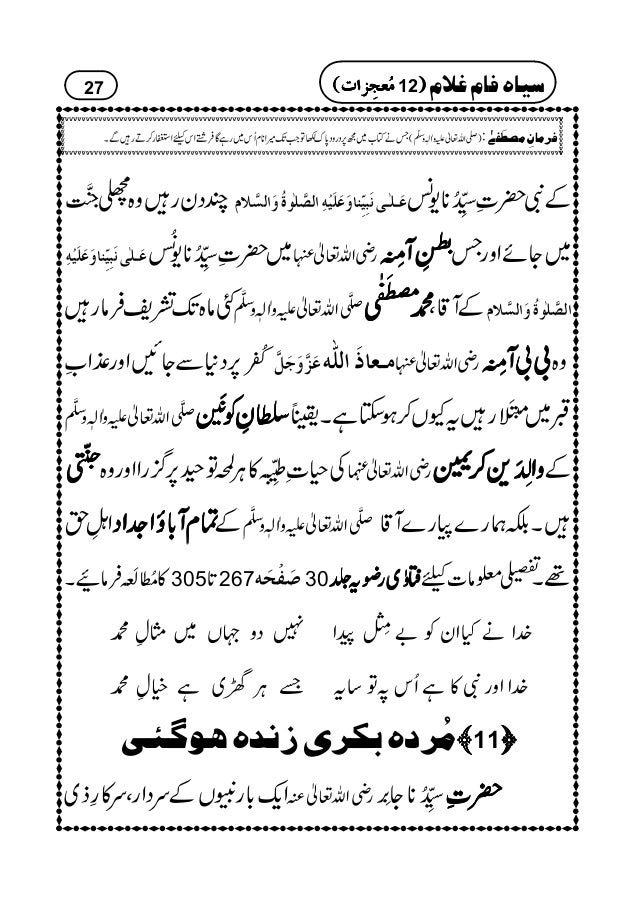 سیاہ فام غلام (12 مُعجِزات)
27
فرمانِ مصطَفٰے : (صلی اللہ تعالیٰ علیہ والہ وسلم) جس نے کتاب میں مجھ پر درود پاک لکھا تو جب تک میرا نام اُس میں رہے گا فرشتے اس کیلئے استغفار کرتے رہیں گے۔
کے نبی حضرتِ سیِّدُنا یونُس عَلٰی نَبِیِّنا وَعَلَیْہِ الصَّلٰوۃُ وَالسَّلام چند دن رہیں وہ مچھلی جنَّت
میں جائے اور جس بطنِ آمِنہ رضی اللہ تعالیٰ عنہا میں حضرتِ سیِّدُنا یونُس عَلٰی نَبِیِّنا وَعَلَیْہِ
الصَّلٰوۃُ وَالسَّلام کے آقا، محمد مصطَفٰی صلَّی اللہ تعالیٰ علیہ والہٖ وسلَّم کئی ماہ تک تشریف فرما رہیں
وہ بی بی آمِنہ رضی اللہ تعالیٰ عنہا معاذَ اللہ عَزَّوَجَلَّ کُفر پر دنیا سے جائیں اور عذابِ
قبر میں مبتَلا رہیں یہ کیوں کر ہو سکتا ہے۔ یقیناً سلطانِ کونَین صلَّی اللہ تعالیٰ علیہ والہٖ وسلَّم
کے والِدَینِ کریمین رضی اللہ تعالیٰ عنہما کی حیاتِ طیِّبہ کا ہر لمحہ توحید پر گزرا اور وہ جنّتی
ہیں۔ بلکہ ہمارے پیارے آقا صلَّی اللہ تعالیٰ علیہ والہٖ وسلَّم کے تمام آباؤ اجداد اہلِ حق
تھے۔ تفصیلی معلومات کیلئے فتاوٰی رضویہ جلد 30 صَفْحَہ 267 تا 305 کا مُطالَعہ فرمائیے۔
خدا نے کیا ان کو بے مِثل پیدا نہیں دو جہاں میں مثالِ محمد
خدا اور نبی کا ہے اُس پہ تو سایہ جسے ہر گھڑی ہے خیالِ محمد
﴿11﴾ مُردہ بکری زندہ ہوگئی
حضرتِ سیِّدُنا جابِر رضی اللہ تعالیٰ عنہ ایک بار نبیوں کے سردار، سرکارِ ذی